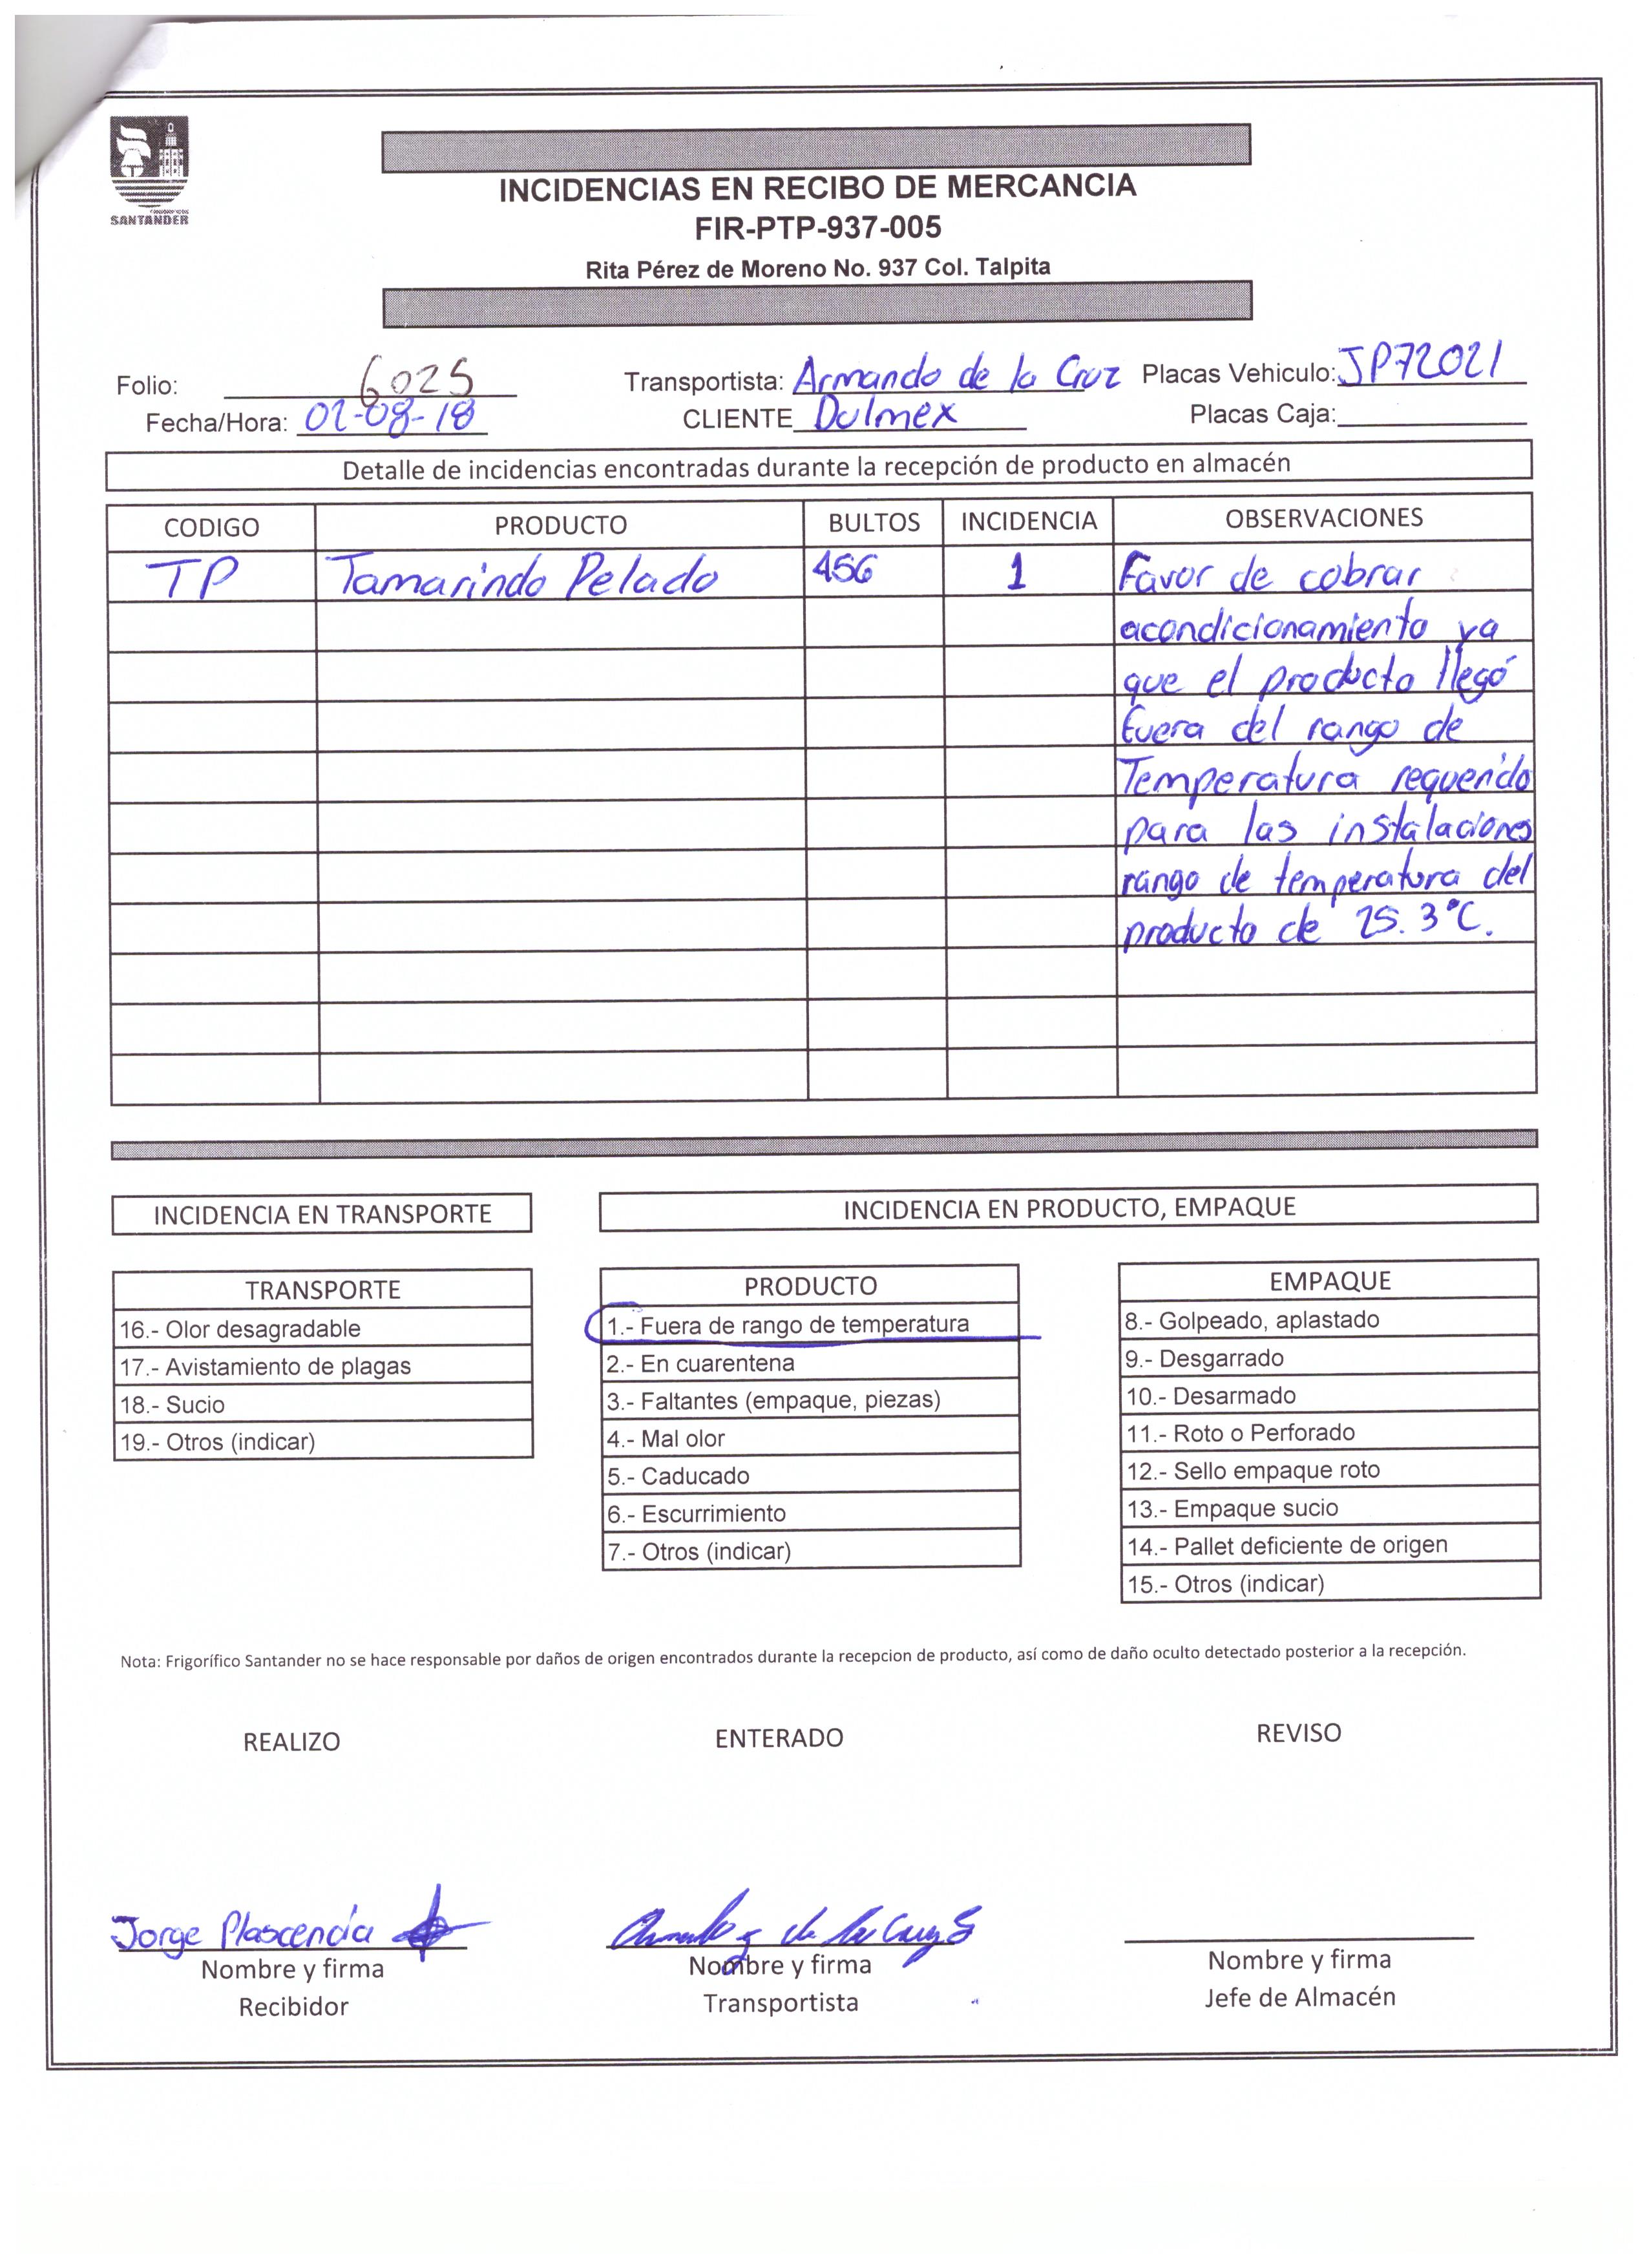 FRIGORIFICOS
SANTANDER
INCIDENCIAS EN RECIBO DE MERCANCIA
FIR-PTP-937-005
Rita Pérez de Moreno No. 937 Col. Talpita
Folio: 6025 Transportista: Armando de la Cruz Placas Vehiculo: JP72021
Fecha/Hora: 02-08-18 CLIENTE Dulmex Placas Caja:
Detalle de incidencias encontradas durante la recepción de producto en almacén
CODIGO PRODUCTO BULTOS INCIDENCIA OBSERVACIONES
TP Tamarindo Pelado 456 1 Favor de cobrar
acondicionamiento ya
que el producto llegó
fuera del rango de
Temperatura requerido
para las instalaciones
rango de temperatura del
producto de 25.3°C.
INCIDENCIA EN TRANSPORTE
INCIDENCIA EN PRODUCTO, EMPAQUE
TRANSPORTE
16.- Olor desagradable
17.- Avistamiento de plagas
18.- Sucio
19.- Otros (indicar)
PRODUCTO
1.- Fuera de rango de temperatura
2.- En cuarentena
3.- Faltantes (empaque, piezas)
4.- Mal olor
5.- Caducado
6.- Escurrimiento
7.- Otros (indicar)
EMPAQUE
8.- Golpeado, aplastado
9.- Desgarrado
10.- Desarmado
11.- Roto o Perforado
12.- Sello empaque roto
13.- Empaque sucio
14.- Pallet deficiente de origen
15.- Otros (indicar)
Nota: Frigorífico Santander no se hace responsable por daños de origen encontrados durante la recepcion de producto, así como de daño oculto detectado posterior a la recepción.
REALIZO ENTERADO REVISO
Jorge Plascencia
Nombre y firma Nombre y firma Nombre y firma
Recibidor Transportista Jefe de Almacén